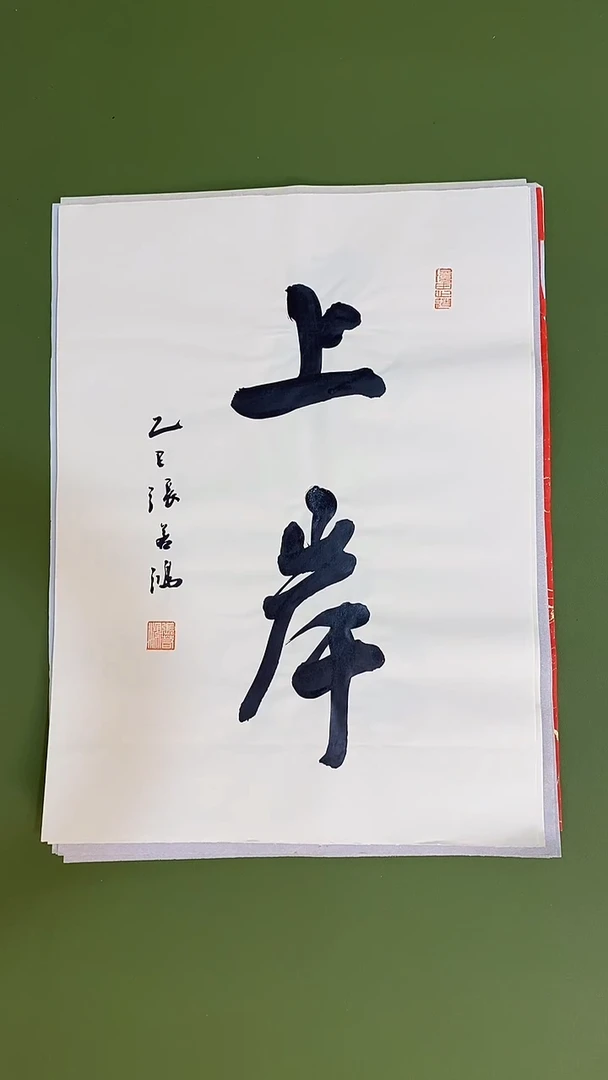 上岸
乙巳張善鴻